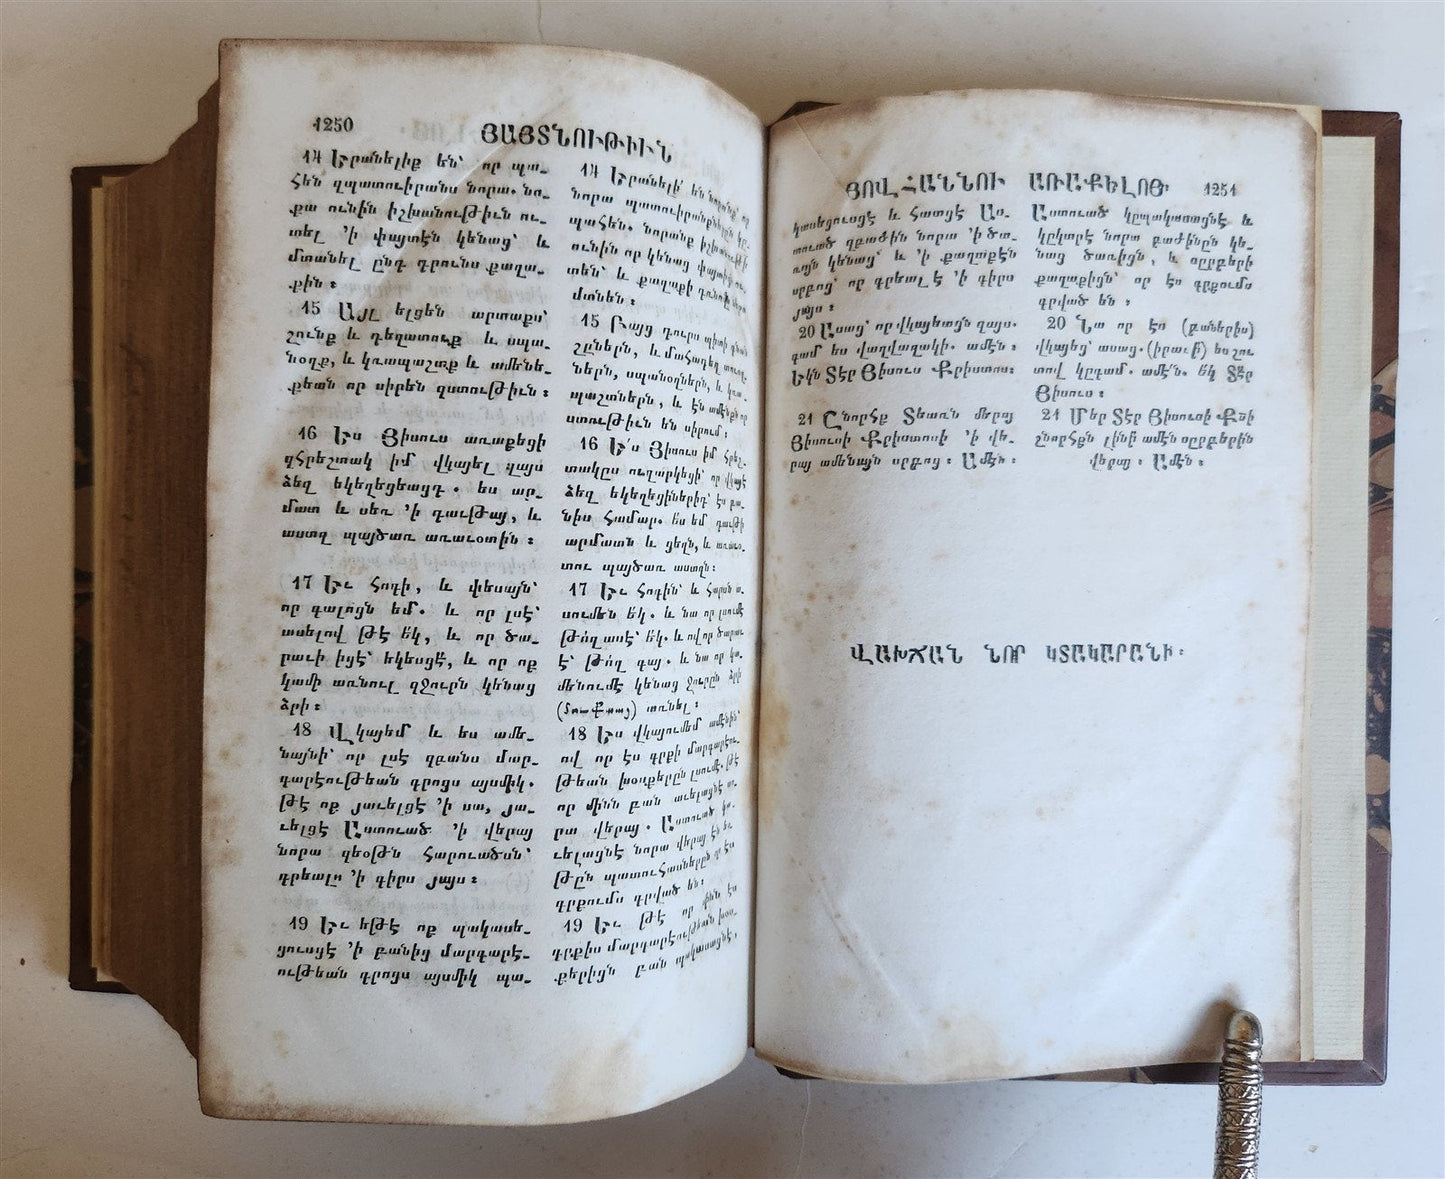 1250
ՅԱՅՏՆՈՒԹԻՒՆ
14 Երանելիք են՝ որ պա-
հեն զպատուիրանս նորա. նո-
քա ունին իշխանութիւն ու-
տել ՚ի փայտէն կենաց՝ և
մտանել ընդ դրունս քաղա-
քին ։
15 Այլ ելցեն արտաքս՝
շունք և դեղատուք և սպա-
նօղք, և կռապաշտք և ամենե-
քեան որ սիրեն զստութիւն ։
16 Ես Յիսուս առաքեցի
զհրեշտակ իմ վկայել զայս
ձեզ եկեղեցեացդ. ես ար-
մատ և սեռ ՚ի դաւթայ, և
աստղ պայծառ առաւօտին ։
17 Եւ հոգի, և փեսայն՝
որ գալոցն եմ. և որ լսէ՝
ասելով թէ եկ, և որ ծա-
րաւի իցէ՝ եկեսցէ, և որ ոք
կամի առնուլ զջուրն կենաց
ձրի ։
18 Վկայեմ և ես ամե-
նայնի՝ որ լսէ զբանս մար-
գարէութեան գրոցս այսմիկ.
թէ ոք յաւելցէ ՚ի սա, յա-
ւելցէ Աստուած ՚ի վերայ
նորա զեօթն հարուածսն՝
գրեալս ՚ի գիրս յայս ։
19 Եւ եթէ ոք պակասե-
ցուսցէ ՚ի բանից մարգարէ-
ութեան գրոցս այսմիկ պա-
14 Երանելի են նոքա՝ որ
նորա պատուիրանքներն կը
պահեն. նորանք
ունին որ կենաց
տեն՝ և քաղաքի
մտնեն ։
15 Բայց դուրս պիտի
շըներն, և մահադեղ
ներն, սպանօղներն, և կռա-
պաշտներն, և էն ամէնքն որ
ստութիւն են սիրում ։
16 Ե՛ս Յիսուս իմ հրեշ-
տակըս ուղարկեցի՝ որ վկայէ
ձեզ եկեղեցիներիդ՝ էս բա-
նիս համար. ես եմ դաւթի
արմատն և ցեղն, և առաւօ-
տու պայծառ աստղն ։
17 Եւ հոգին՝ և հարսն ա-
սումեն եկ. և նա որ լսումէ
թող ասէ՝ եկ. և ով որ ծարաւ
է՝ թող գայ. և նա որ կա-
մենումէ կենաց ջուրըն ձրի
առնել ։
18 Ես վկայումեմ ամէնին՝
ով որ էս գրքի մարգարէու-
թեան խօսքերըն լսումէ. թէ
որ մինն բան աւելացնէ սո-
րա վերայ. Աստուած կա-
ւելացնէ նորա վերայ էն եւ
թըն պատուհասներըն որ էս
գրքումս գրված են ։
19 Եւ թէ որ մինն էս
գրքիս մարգարէութեան խօս-
քերիցն բան պակասացնէ,
ՅՈՎՀԱՆՆՈՒ ԱՌԱՔԵԼՈՅ. 1251
կասեցուսցէ և հատցէ Աս-
տուած զբաժին նորա ՚ի ծա-
ռոյն կենաց՝ և ՚ի քաղաքէն
սրբոց՝ որ գրեալ է ՚ի գիրս
յայս ։
20 Ասաց՝ որ վկայէտցն զայս.
գամ ես վաղվաղակի. ամէն ։
Եկն Տէր Յիսուս Քրիստոս ։
21 Շնորհք Տեառն մերոյ
Յիսուսի Քրիստոսի ՚ի վե-
րայ ամենայն սրբոց ։ Ամէն ։
Աստուած կըպակասացնէ և
կըկտրէ նորա բաժինըն կե-
նաց ծառիցն, և օըրբերի
քաղաքիցն՝ որ էս գրքումս
գրված են ։
20 Նա որ էս (բաներիս)
վկայեց՝ ասաց. (իրաւ է) ես շու
տով կըգամ. ամէն. եկ Տէր
Յիսուս ։
21 Մեր Տէր Յիսուսի Քսի
շնորհքն լինի ամէն օըրբերին
վերայ ։ Ամէն ։
ՎԱԽՃԱՆ ՆՈՐ ԿՏԱԿԱՐԱՆԻ.